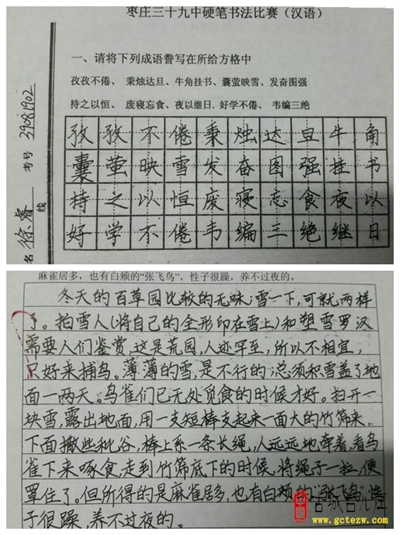 枣庄三十九中硬笔书法比赛（汉语）
一、请将下列成语誊写在所给方格中
孜孜不倦、秉烛达旦、牛角挂书、囊萤映雪、发奋图强
持之以恒、废寝忘食、夜以继日、好学不倦、韦编三绝
孜孜不倦秉烛达旦牛角
囊萤映雪发奋图强挂书
持之以恒废寝忘食夜以
好学不倦韦编三绝继日
考号 39081902
名 徐睿 线
麻雀居多，也有白颊的“张飞鸟”，性子很躁，养不过夜的。
冬天的百草园比较的无味；雪一下，可就两样
了。拍雪人（将自己的全形印在雪上）和塑雪罗汉
需要人们鉴赏，这是荒园，人迹罕至，所以不相宜，
只好来捕鸟。薄薄的雪，是不行的；总须积雪盖了地
面一两天，鸟雀们已无处觅食的时候才好。扫开一
块雪，露出地面，用一支短棒支起来一面大的竹筛来，
下面撒些秕谷，棒上系一条长绳，人远远地牵着，看鸟
雀下来啄食，走到竹筛底下的时候，将绳子一拉，便
罩住了。但所得的是麻雀居多，也有白颊的“张飞鸟”，性
子很躁，养不过夜的。
www.gctezw.com